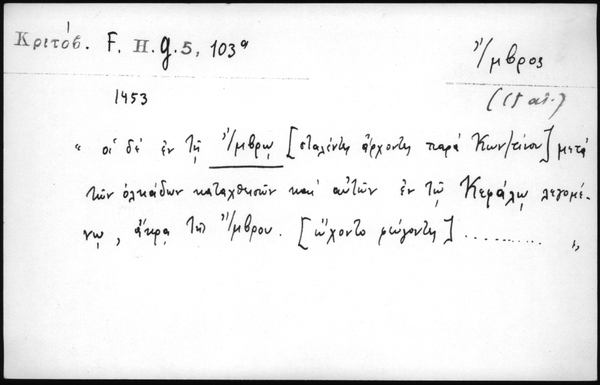 Κριτόβ. F. H. g. 5, 103ᵃ
Ἴμβρος
(15 αἰ.)
1453
" οἱ δέ ἐν τῇ Ἴμβρῳ [σταλέντες ἄρχοντες παρά Κων/τίνου] μετά
τῶν ὁλκάδων καταχθεισῶν κατ' αὐτῶν ἐν τῷ Κεφάλῳ λεγομέ-
νῳ, ἄκρᾳ τῆς Ἴμβρου. [ᾤχοντο φεύγοντες] .......... "